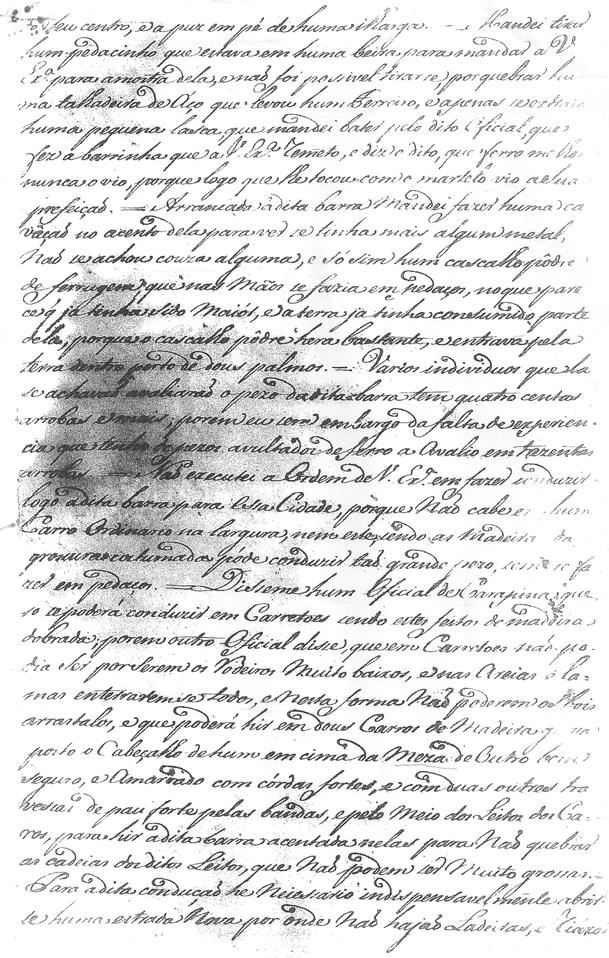 seu centro, e a puz em pé de huma ilharga. — Mandei tirar
hum pedacinho que estava em huma beira para mandar a V.
Exª. para amostra dela, e naõ foi posivel tirarce, por quebrar hu-
ma talhadeira de Aço que levou hum Ferreiro, e apenas se extraio
huma pequena lasca, que mandei bater pelo dito Oficial, que
fez a barrinha que a V. Exª. Remeto, e diz o dito, que ferro melhor
nunca o vio, porque logo que lhe tocou com o martelo vio a sua
prefeiçaõ. — Arrancado a dita barra Mandei fazer huma ca-
vaçaõ no acento dela para ver se tinha mais algum metal,
Naõ se achou couza alguma, e só sim hum cascalho pôdre
de ferrugem, que nas Mãos se fazia em pedaços, no que pare
ce q̃ já tinha sido Maiór, e a terra já tinha consumido parte
dela, porque o cascalho pôdre hera bastante, e entrava pela
terra dentro perto de dous palmos. — Varios individuos que la
se achavaõ avaliaraõ o pezo da dita barra tem quatro centas
arrobas e mais, porem eu sem embargo da falta de experien-
cia que tenho de pezos avultados de ferro a Avalio em trezentas
arrobas. — Naõ executei a Ordem de V. Exª. em fazer conduzir
logo a dita barra para essa Cidade, porque Naõ cabe em hum
Carro Ordinario na largura, nem este, sendo as Madeiras da
grocura costumada póde conduzir taõ grande pezo, sem se fa
zer em pedaços. — Disseme hum Oficial de Carapina, que
so se poderá conduzir em Carretoes sendo estes feitos de madeira
dobrada; porem outro Oficial disse, que em Carretoes naõ po-
dia ser por serem os Rodeiros Muito baixos, e nas Areias ó la-
mas enterraremse todos, e Nesta forma Naõ poderem os bois
arrastalos, e que poderá hir em dous Carros de Madeira
posto o Cabeçalho de hum em cima da Meza de Outro bem
seguro, e Amarrado com córdas fortes, e com duas outres tra
vessas de pau forte pelas bandas, e pelo Meio dos Leitos dos Ca-
ros, para hir a dita barra acentada nelas para Naõ quebrar
as cadeias dos ditos Leitos, que Naõ podem ser Muito grossas.
Para a dita conduçaõ he Necessario indispensavelmente abrir-
se huma estrada Nova por onde Naõ hajaõ Ladeiras, e